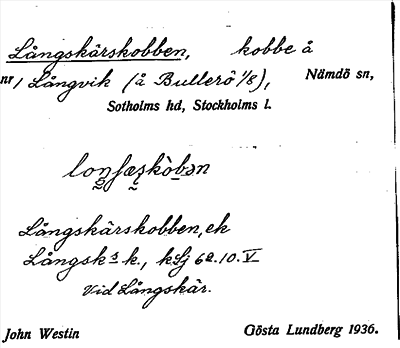 Långskärskobben, kobbe å
nr 1 Långvik (å Bullerö 1/8), Nämdö sn,
Sotholms hd, Stockholms l.
Långskärskobben, ek
Långsk k., kSj 62.10.V
vid Långskär.
John Westin Gösta Lundberg 1936.